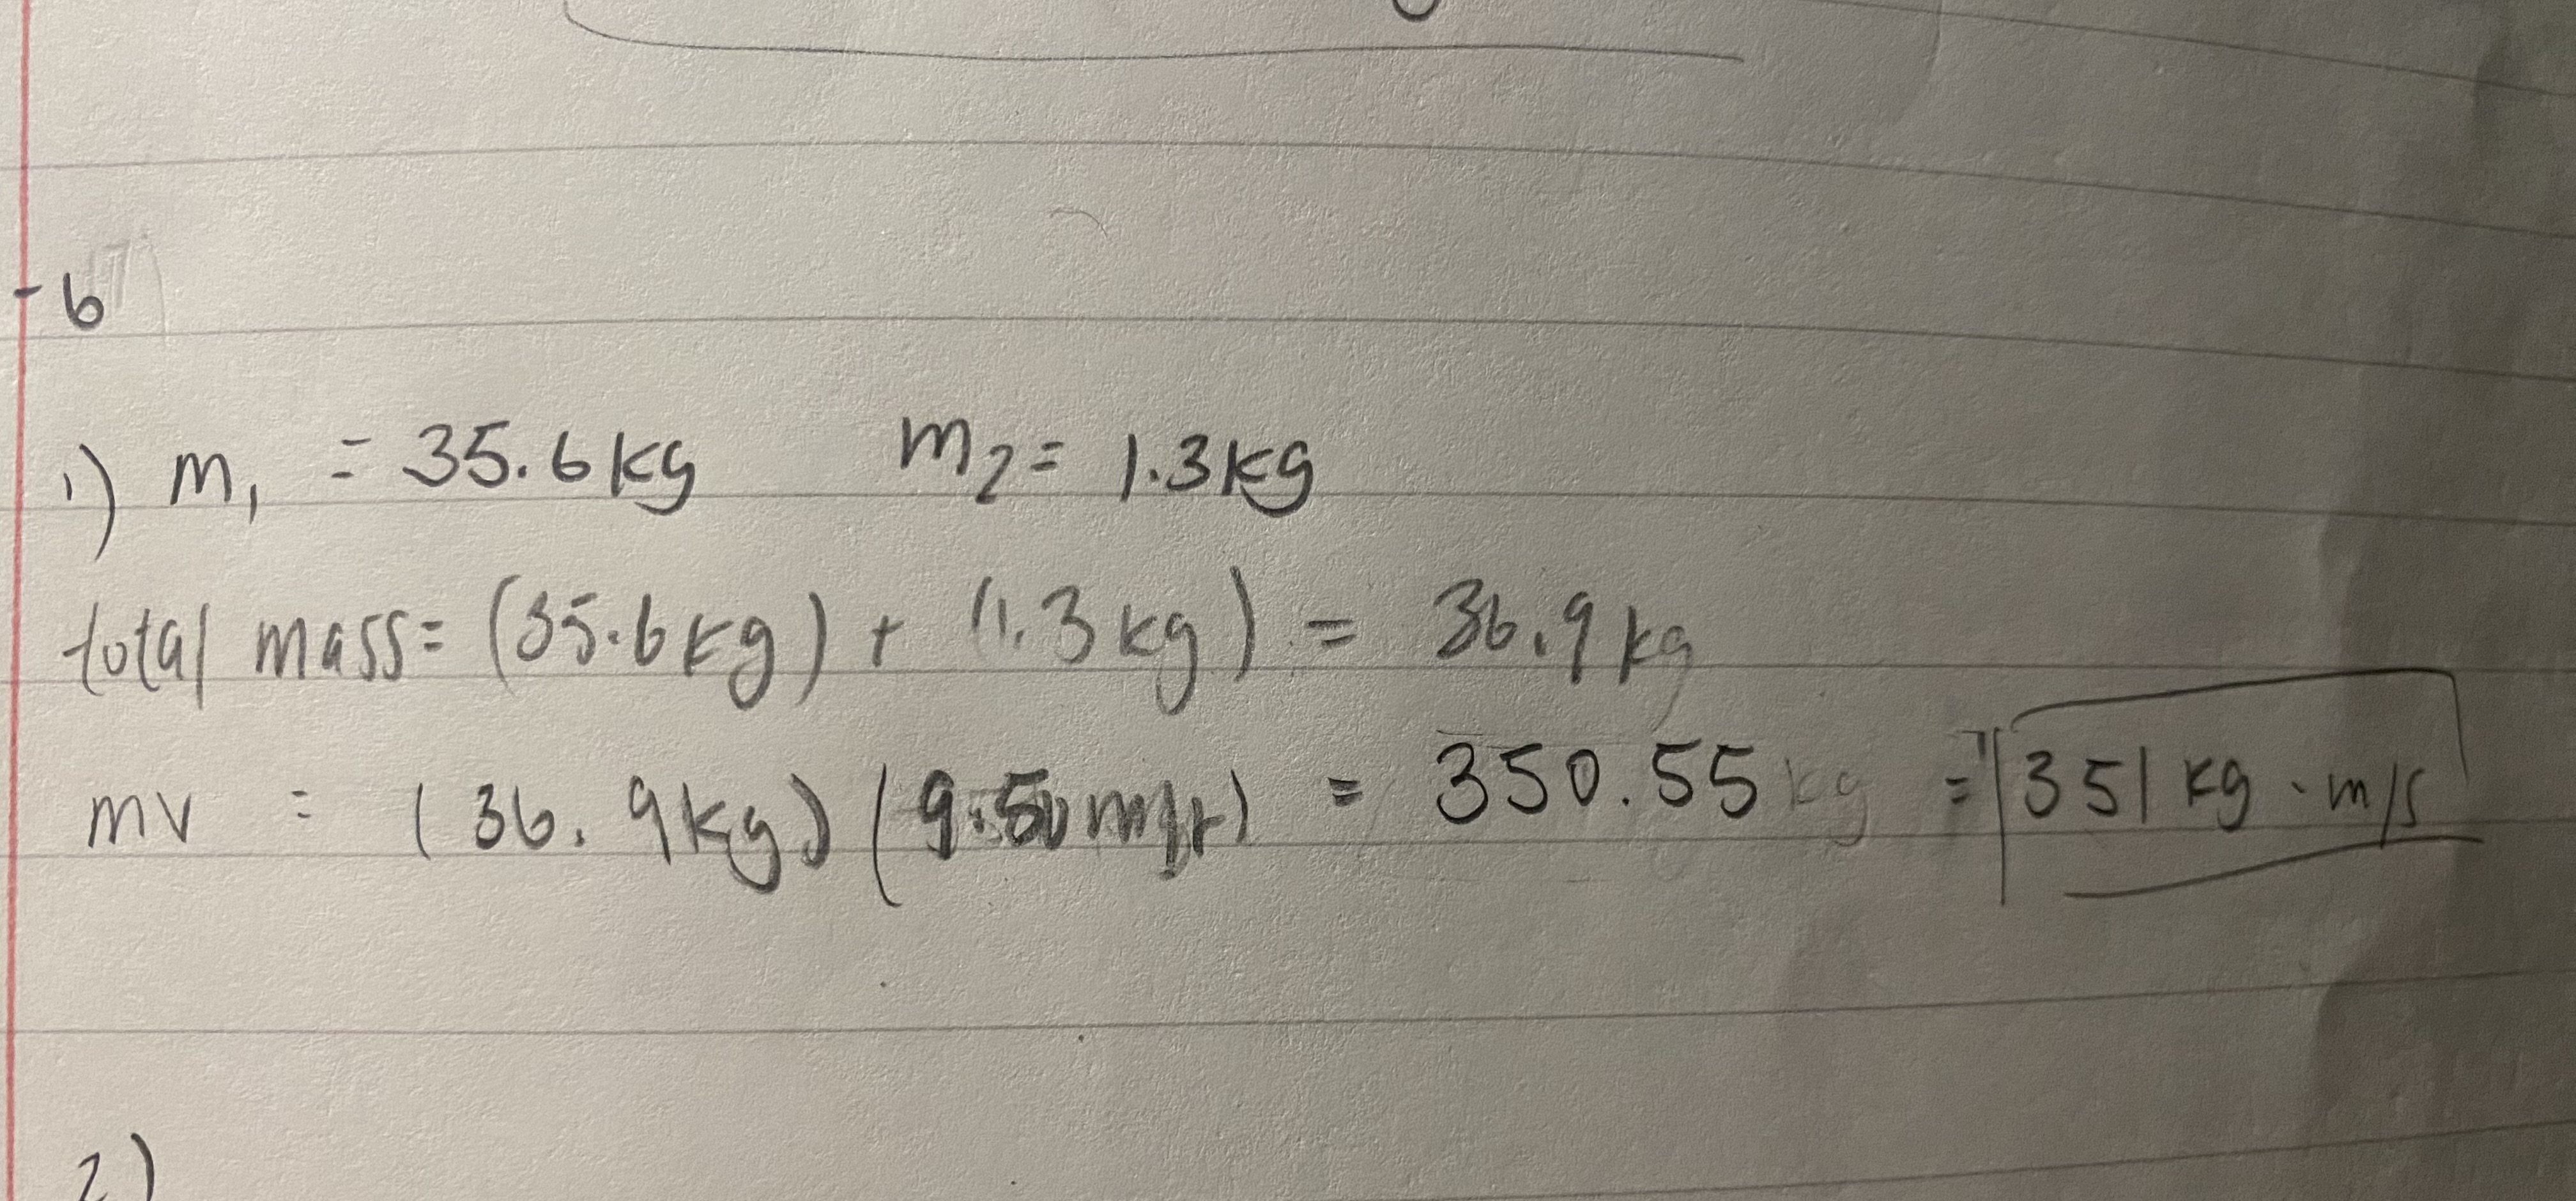 -6
1) m₁ = 35.6 kg m₂ = 1.3 kg
total mass = (35.6 kg) + (1.3 kg) = 36.9 kg
mv = (36.9 kg) (9.50 m/s) = 350.55 kg = 351 kg · m/s
2)